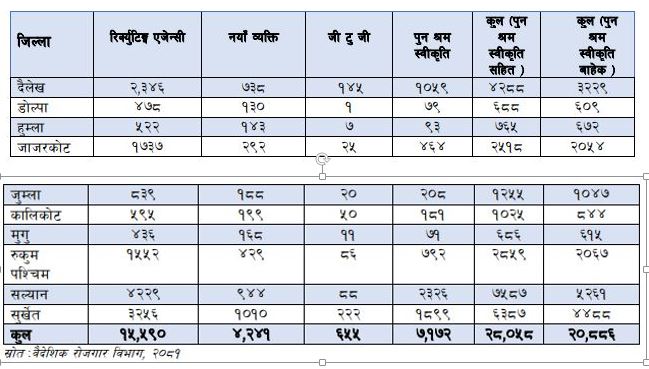 जिल्ला रिर्क्युटिङ्ग एजेन्सी नयाँ व्यक्ति जी टु जी पुन श्रम स्वीकृति कुल (पुन श्रम स्वीकृति सहित ) कुल (पुन श्रम स्वीकृति बाहेक )
दैलेख २,३४६ ७३८ १४५ १०५९ ४२८८ ३२२९
डोल्पा ४७८ १३० १ ७९ ६८८ ६०९
हुम्ला ५२२ १४३ ७ ९३ ७६५ ६७२
जाजरकोट १७३७ २९२ २५ ४६४ २५१८ २०५४
जुम्ला ८३९ १८८ २० २०८ १२५५ १०४७
कालिकोट ५९५ १९९ ५० १८१ १०२५ ८४४
मुगु ४३६ १६८ ११ ७१ ६८६ ६१५
रुकुम पश्चिम १५५२ ४२९ ८६ ७९२ २८५९ २०६७
सल्यान ४२२९ ९४४ ८८ २३२६ ७५८७ ५२६१
सुर्खेत ३२५६ १०१० २२२ १८९९ ६३८७ ४४८८
कुल १५,५९० ४,२४१ ६५५ ७,१७२ २८,०५८ २०,८८६
स्रोत : वैदेशिक रोजगार विभाग, २०८१